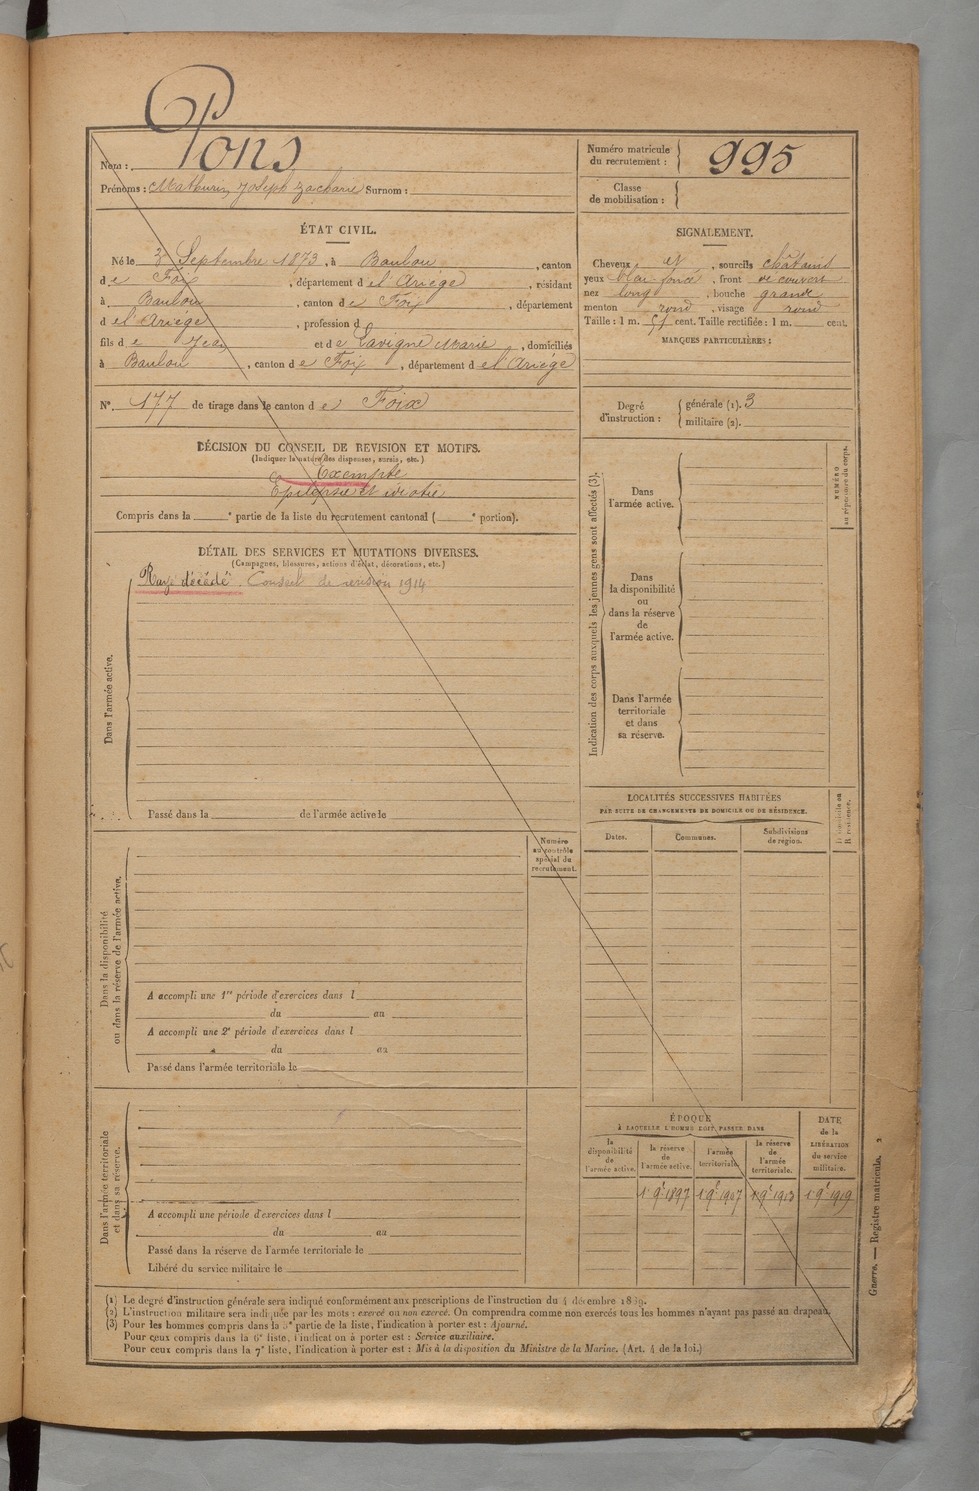 Nom : Pons
Prénoms : Mathurin Joseph Zacharie Surnom :
Numéro matricule
du recrutement : 995
Classe
de mobilisation :
ÉTAT CIVIL.
Né le 3 Septembre 1873, à Baulou, canton
de Foix, département de l'Ariège, résidant
à Baulou, canton de Foix, département
de l'Ariège, profession d
fils de Jean et de Lavigne Marie, domiciliés
à Baulou, canton de Foix, département de l'Ariège
N° 177 de tirage dans le canton de Foix
SIGNALEMENT.
Cheveux et, sourcils châtains
yeux bleu foncé, front découvert
nez long, bouche grande
menton rond, visage rond
Taille : 1 m. 51 cent. Taille rectifiée : 1 m. cent.
MARQUES PARTICULIÈRES :
Degré
d'instruction :
générale (1). 3
militaire (2).
DÉCISION DU CONSEIL DE REVISION ET MOTIFS.
(Indiquer la nature des dispenses, sursis, etc.)
Exempté
Epilepsie et idiotie
Compris dans la e partie de la liste du recrutement cantonal ( e portion).
DÉTAIL DES SERVICES ET MUTATIONS DIVERSES.
(Campagnes, blessures, actions d'éclat, décorations, etc.)
Rayé décédé. Conseil de revision 1914
Dans l'armée active.
Passé dans la de l'armée active le
Numéro
au contrôle
spécial du
recrutement.
Dans la disponibilité
ou dans la réserve de l'armée active.
A accompli une 1re période d'exercices dans l
du au
A accompli une 2e période d'exercices dans l
du au
Passé dans l'armée territoriale le
Dans l'armée territoriale
et dans sa réserve.
A accompli une période d'exercices dans l
du au
Passé dans la réserve de l'armée territoriale le
Libéré du service militaire le
Indication des corps auxquels les jeunes gens sont affectés (3).
Dans
l'armée active.
Dans
la disponibilité
ou
dans la réserve
de
l'armée active.
Dans l'armée
territoriale
et dans
sa réserve.
NUMÉRO
au répertoire du corps.
LOCALITÉS SUCCESSIVES HABITÉES
PAR SUITE DE CHANGEMENTS DE DOMICILE OU DE RÉSIDENCE.
Dates.
Communes.
Subdivisions
de région.
D. domicile ou
R. résidence.
ÉPOQUE
À LAQUELLE L'HOMME DOIT PASSER DANS
la
disponibilité
de
l'armée active.
la réserve
de
l'armée active.
l'armée
territoriale.
la réserve
de
l'armée
territoriale.
DATE
de la
LIBÉRATION
du service
militaire.
1 9e 1897 1 9e 1907 1 9e 1913 1 9e 1919
(1) Le degré d'instruction générale sera indiqué conformément aux prescriptions de l'instruction du 4 décembre 1889.
(2) L'instruction militaire sera indiquée par les mots : exercé ou non exercé. On comprendra comme non exercés tous les hommes n'ayant pas passé au drapeau.
(3) Pour les hommes compris dans la 5e partie de la liste, l'indication à porter est : Ajourné.
Pour ceux compris dans la 6e liste, l'indication à porter est : Service auxiliaire.
Pour ceux compris dans la 7e liste, l'indication à porter est : Mis à la disposition du Ministre de la Marine. (Art. 4 de la loi.)
Guerre. — Registre matricule. 2